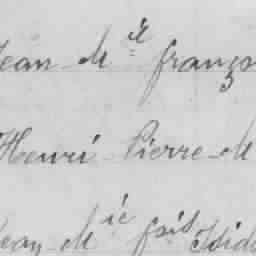 Jean M.ie franço
Henri Pierre M
Jean M.ie fçois Isid